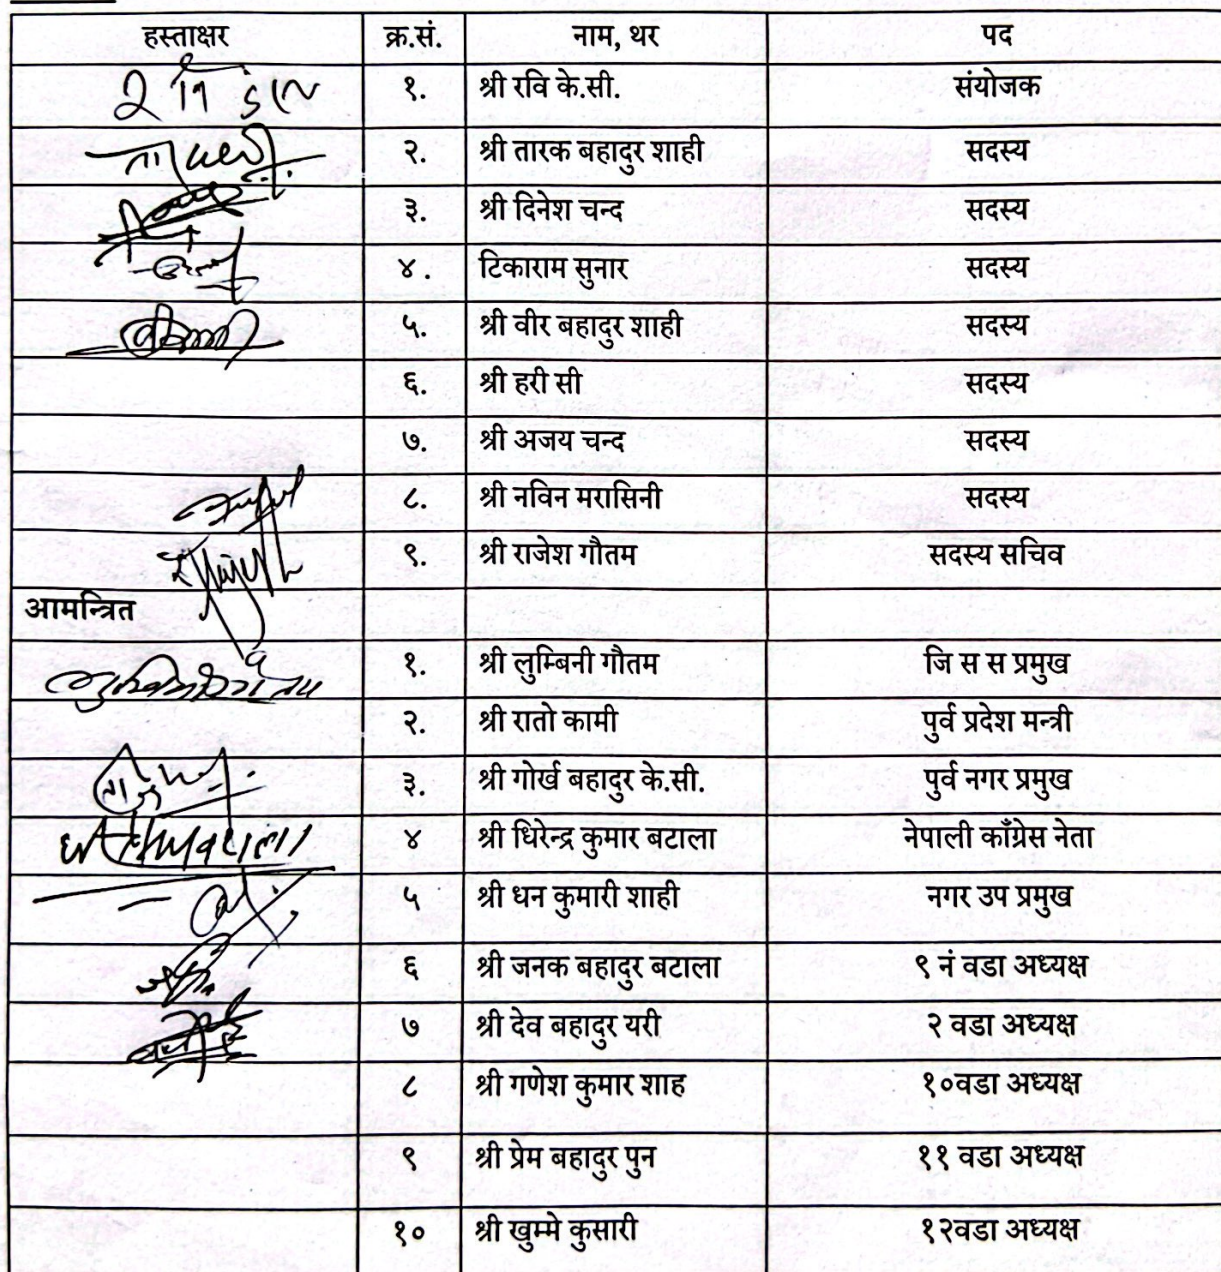 हस्ताक्षर क्र.सं. नाम, थर पद
१. श्री रवि के.सी. संयोजक
२. श्री तारक बहादुर शाही सदस्य
३. श्री दिनेश चन्द सदस्य
४. टिकाराम सुनार सदस्य
५. श्री वीर बहादुर शाही सदस्य
६. श्री हरी सी सदस्य
७. श्री अजय चन्द सदस्य
८. श्री नविन मरासिनी सदस्य
९. श्री राजेश गौतम सदस्य सचिव
आमन्त्रित
१. श्री लुम्बिनी गौतम जि स स प्रमुख
२. श्री रातो कामी पुर्व प्रदेश मन्त्री
३. श्री गोर्ख बहादुर के.सी. पुर्व नगर प्रमुख
४ श्री धिरेन्द्र कुमार बटाला नेपाली काँग्रेस नेता
५ श्री धन कुमारी शाही नगर उप प्रमुख
६ श्री जनक बहादुर बटाला ९ नं वडा अध्यक्ष
७ श्री देव बहादुर यरी २ वडा अध्यक्ष
८ श्री गणेश कुमार शाह १०वडा अध्यक्ष
९ श्री प्रेम बहादुर पुन ११ वडा अध्यक्ष
१० श्री खुम्मे कुसारी १२वडा अध्यक्ष